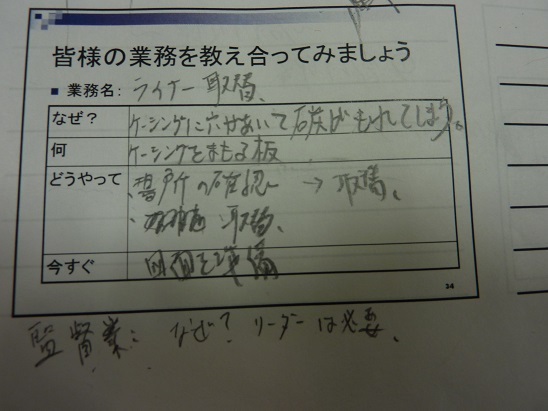 皆様の業務を教え合ってみましょう
■ 業務名: ライナー取替、
なぜ? ケーシングに穴があいて炭がもれてしまう。
何 ケーシングをまもる板
どうやって ・ の確認 → 取替。
・ 取替、
今すぐ 図面を準備
34
監督業: なぜ? リーダーは必要、